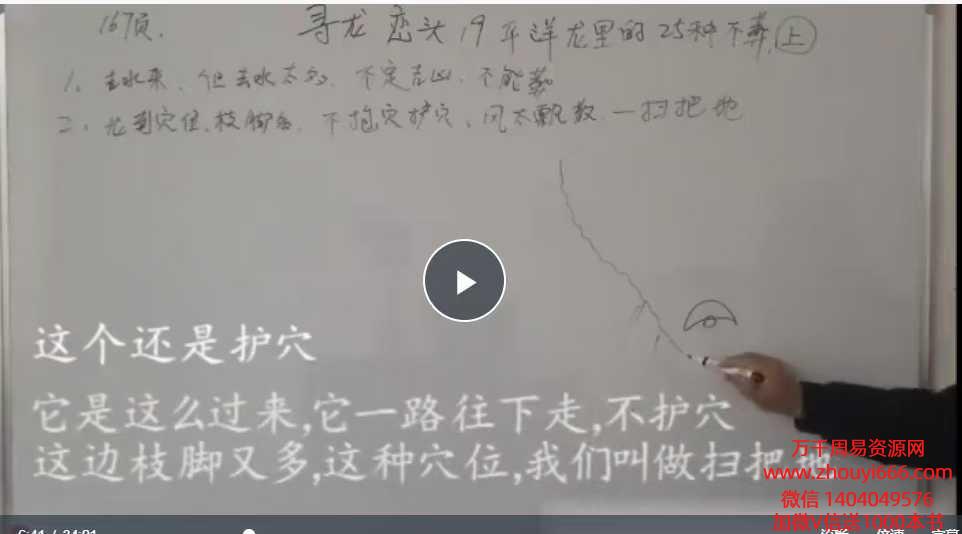 167页.
寻龙 峦头 19 平洋龙里的 25种不葬. 上
1. 去水来、但去水太多、不定吉凶、不能葬
2. 龙到穴位、枝脚多、不抱穴护穴、风太飘散、一扫把地
这个还是护穴
它是这么过来,它一路往下走,不护穴
这边枝脚又多,这种穴位,我们叫做扫把
万千周易资源网
www.zhouyi666.com
微信 1404049576
加微V信送1000本书